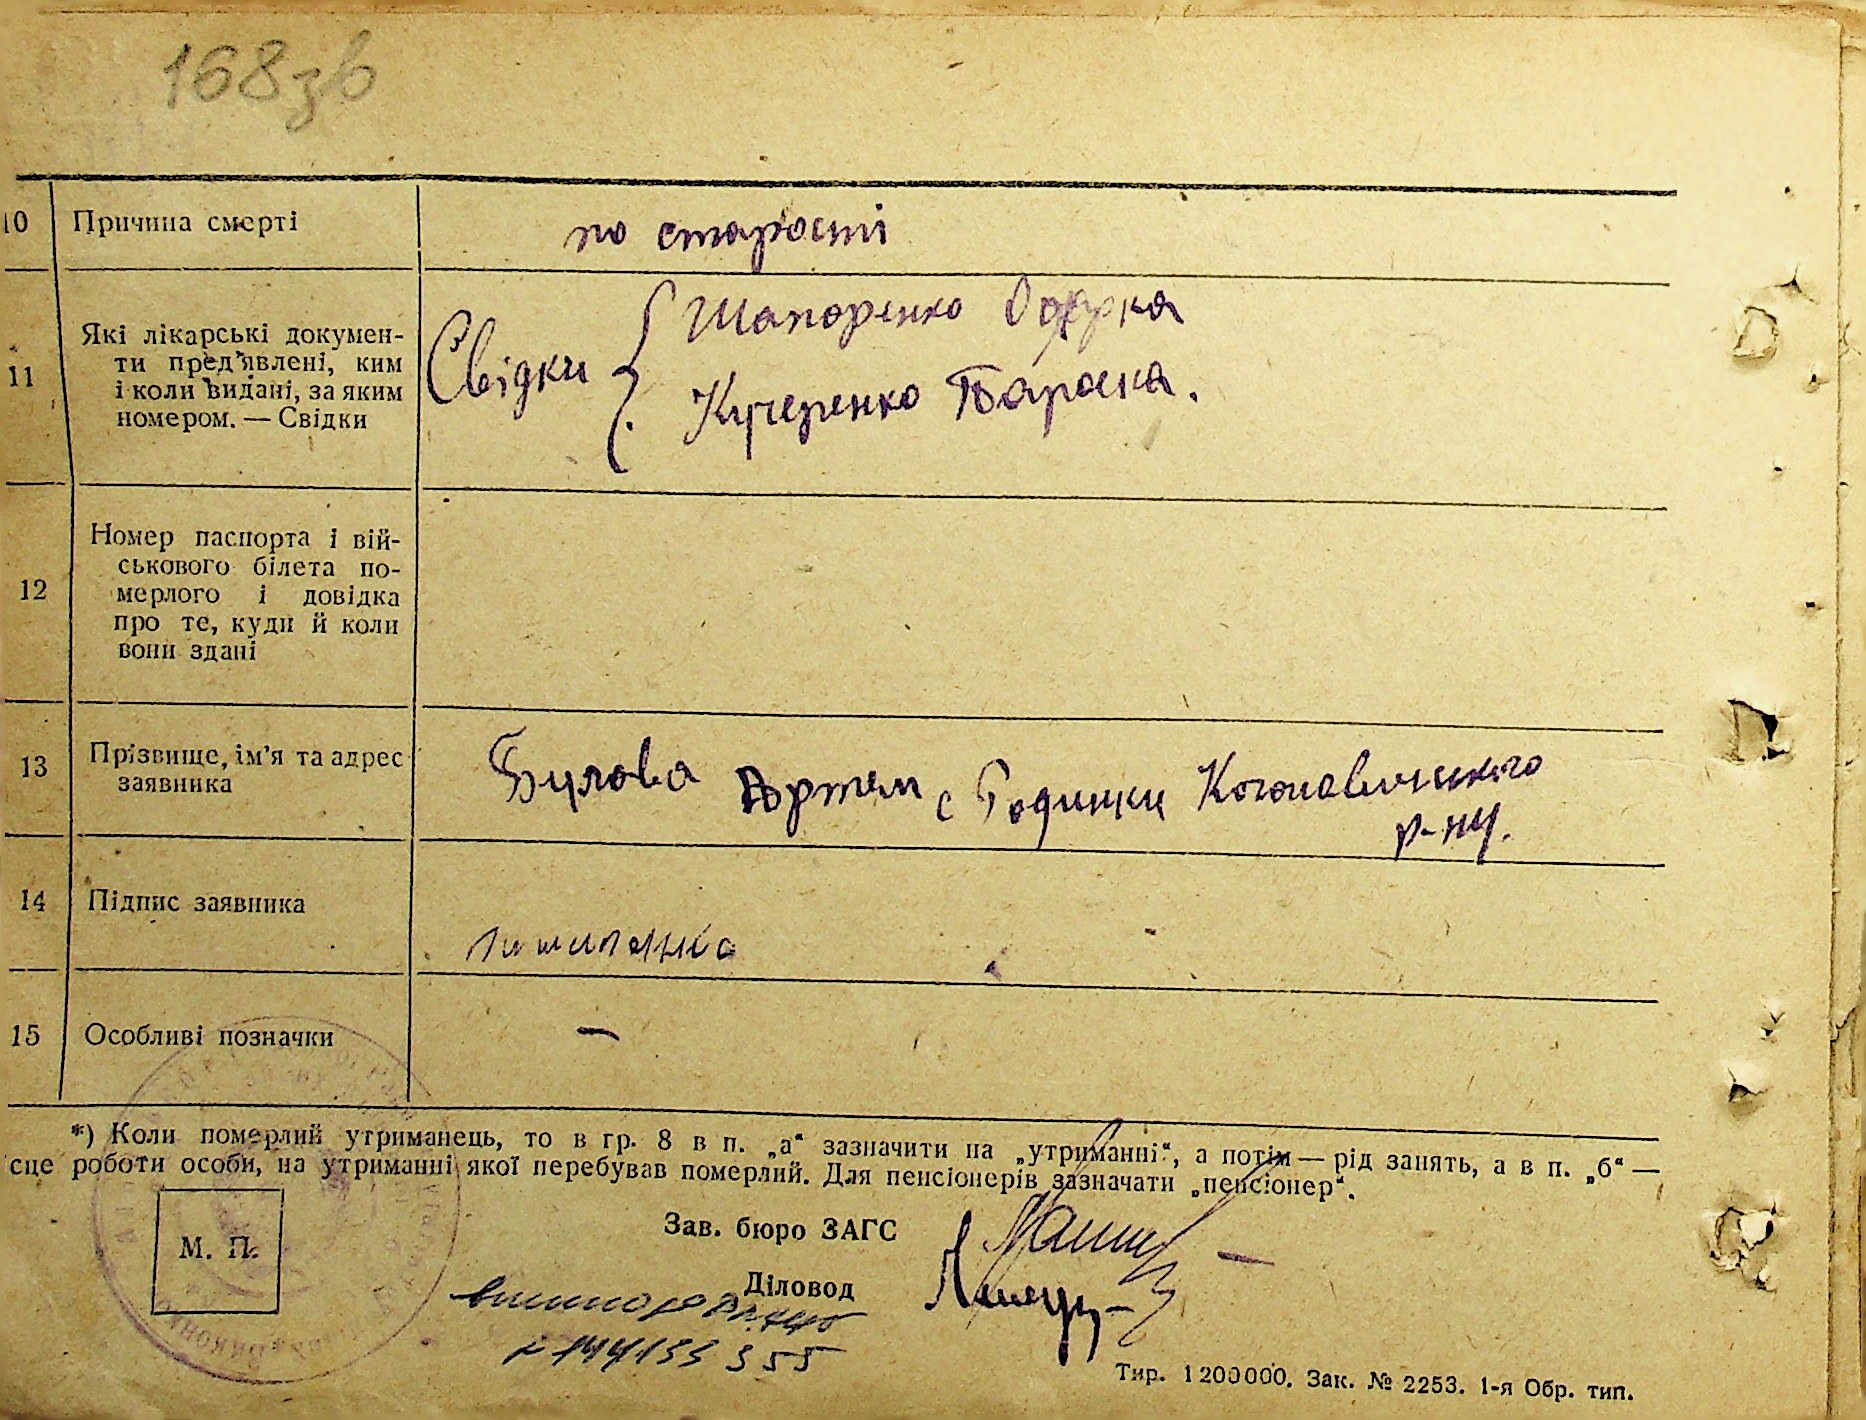 168зв
10 Причина смерті по старості
11 Які лікарські докумен-
ти пред'явлені, ким
і коли видані, за яким
номером. — Свідки
Свідки { Шапоренко Одарка
Кучеренко Параска.
12 Номер паспорта і вій-
ськового білета по-
мерлого і довідка
про те, куди й коли
вони здані
13 Прізвище, ім'я та адрес
заявника
Булава Артем с
р-ну.
14 Підпис заявника
15 Особливі позначки —
*) Коли померлий утриманець, то в гр. 8 в п. „а“ зазначити на „утриманні“, а потім — рід занять, а в п. „б“ —
сце роботи особи, на утриманні якої перебував померлий. Для пенсіонерів зазначати „пенсіонер“.
М. П.
Зав. бюро ЗАГС
Діловод
Тир. 1200000. Зак. № 2253. 1-я Обр. тип.